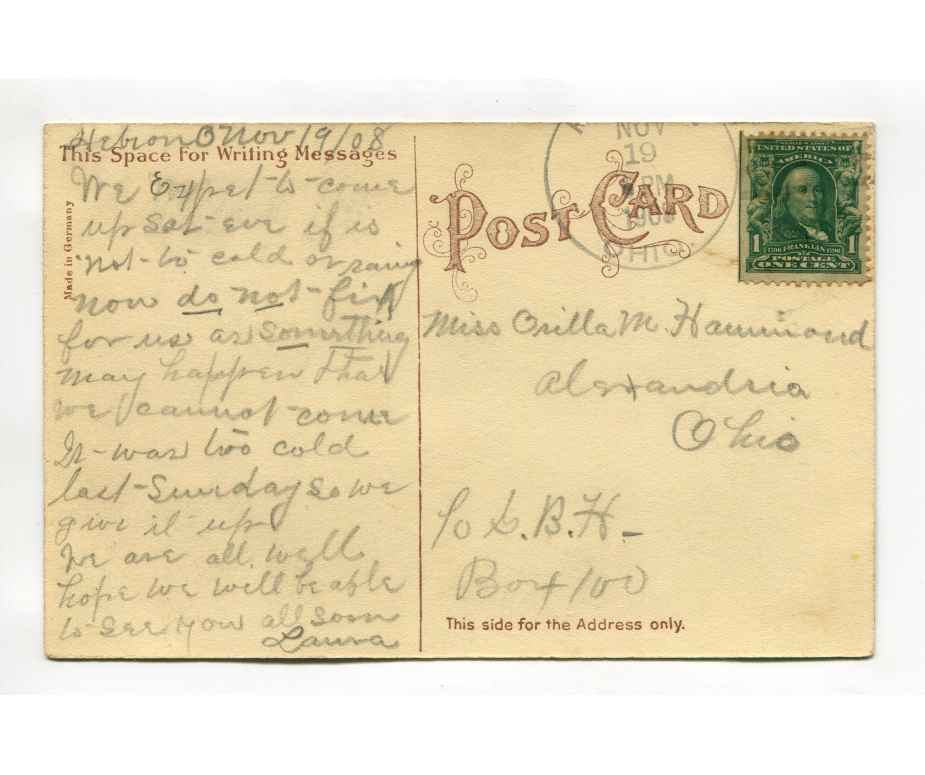 Hebron O Nov 19/08
This Space for Writing Messages
We Expet to come
up Sat eve if is
not to cold or rainy
now do not fix
for us as something
may happen that
we cannot come
It was too cold
last Sunday so we
give it up
We are all well
hope we will be able
to see you all soon
Laura
Made in Germany
NOV
19
PM
OHIO
POST CARD
UNITED STATES OF
AMERICA
1 1706 FRANKLIN 1790 1
POSTAGE
ONE CENT
Miss Orilla M. Hammond
Alexandria
Ohio
%S. B. H-
Box 100
This side for the Address only.